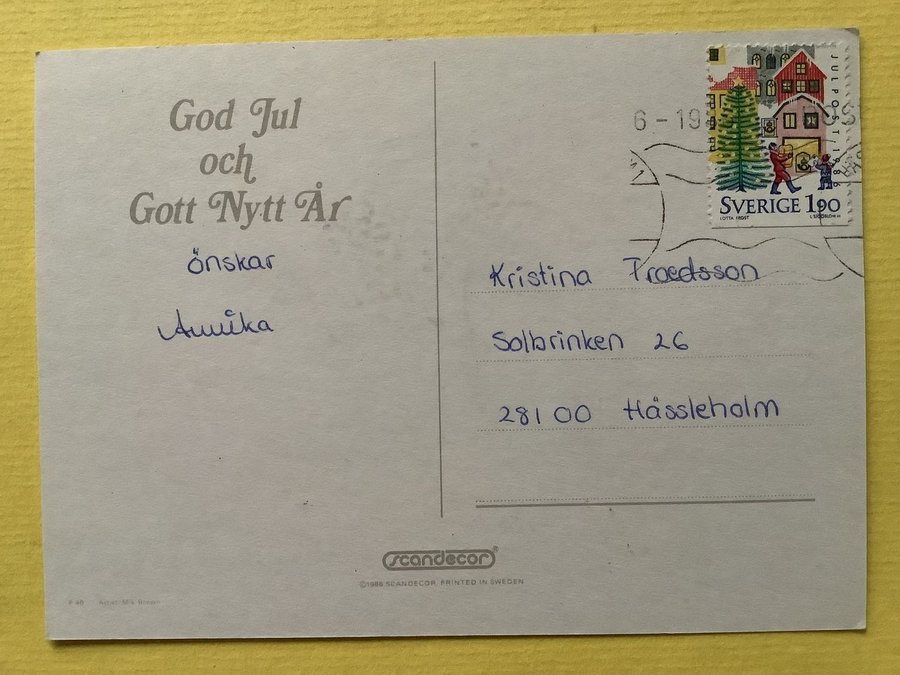 God Jul
och
Gott Nytt År
önskar
Annika
6-19
JULPOST 1986
SVERIGE 1,90
LOTTA FROST
Kristina Troedsson
Solbrinken 26
281 00 Hässleholm
scandecor®
©1986 SCANDECOR, PRINTED IN SWEDEN